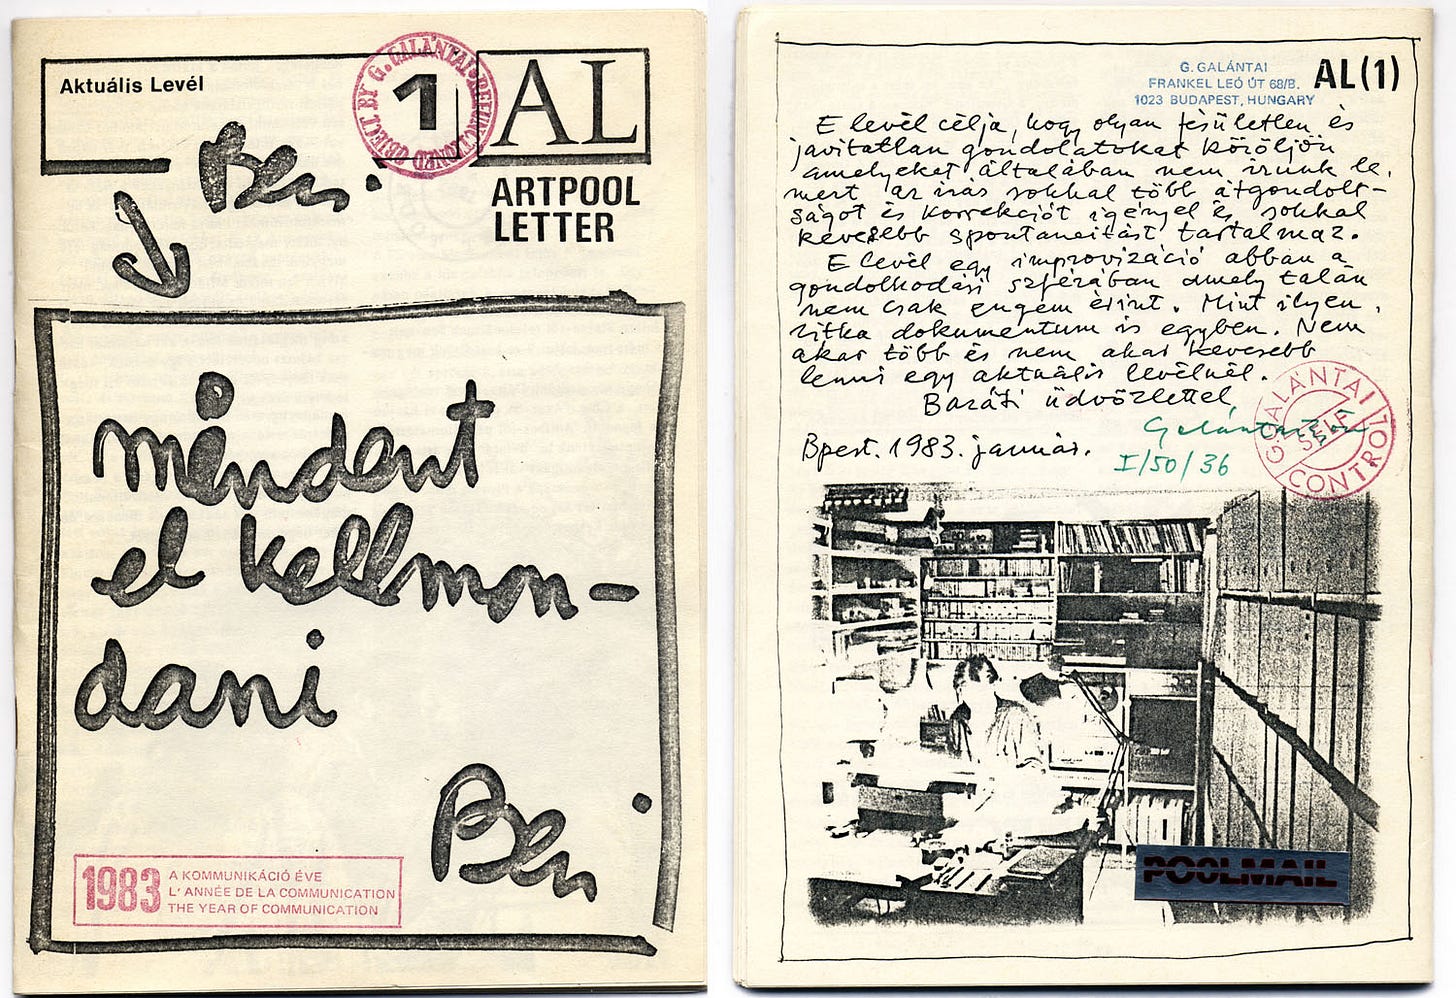 Aktuális Levél
OBJECT BY G. GALÁNTAI • REFUNCTIONED
1
AL
Ben.
ARTPOOL
LETTER
mindent
el kellmon-
dani
Ben
1983
A KOMMUNIKÁCIÓ ÉVE
L' ANNÉE DE LA COMMUNICATION
THE YEAR OF COMMUNICATION
G. GALÁNTAI
FRANKEL LEÓ ÚT 68/B.
1023 BUDAPEST, HUNGARY
AL(1)
E levél célja, hogy olyan fésületlen és
javitatlan gondolatokat közöljön
amelyeket általában nem irunk le,
mert az irás sokkal több átgondolt-
ságot és korrekciót igényel és sokkal
kevesebb spontaneitást tartalmaz.
E levél egy improvizáció abban a
gondolkodási szférában amely talán
nem csak engem érint. Mint ilyen,
ritka dokumentum is egyben. Nem
akar több és nem akar kevesebb
lenni egy aktuális levélnél.
Baráti üdvözlettel
Galántai
Bpest. 1983. január.
I/50/36
GALÁNTAI
SELF
CONTROL
POOLMAIL